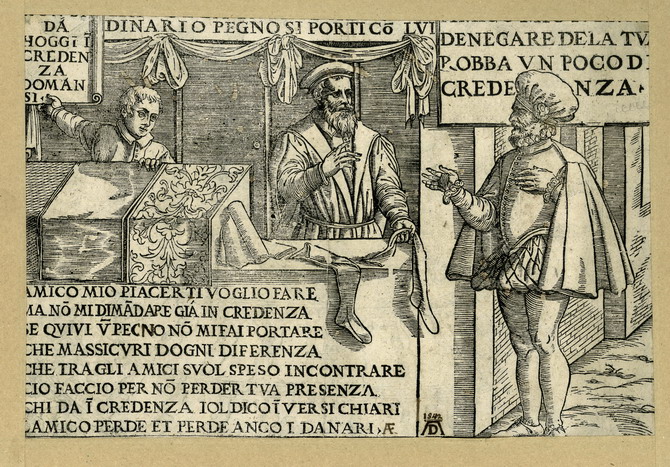 DÁ
HOGGI Ī
CREDEN
ZA
DOMAN
SI·
DINARIO PEGNO SI PORTI CŌ LVI
DENEGARE DE LA TV
ROBBA VN POCO DI
CREDENZA·
AMICO MIO PIACER TI VOGLIO FARE
MA NŌ MI DIMĀDARE GIÁ IN CREDENZA
SE QVIVI V̄ PEGNO NŌ MI FAI PORTARE
CHE MASSICVRI DOGNI DIFERENZA
CHE TRA GLI AMICI SVOL SPESO INCONTRARE
CIO FACCIO PER NŌ PERDER TVA PRESENZA
CHI DA Ī CREDENZA IOL DICO Ī VERSI CHIARI
LAMICO PERDE ET PERDE ANCO I DANARI·Æ
AD